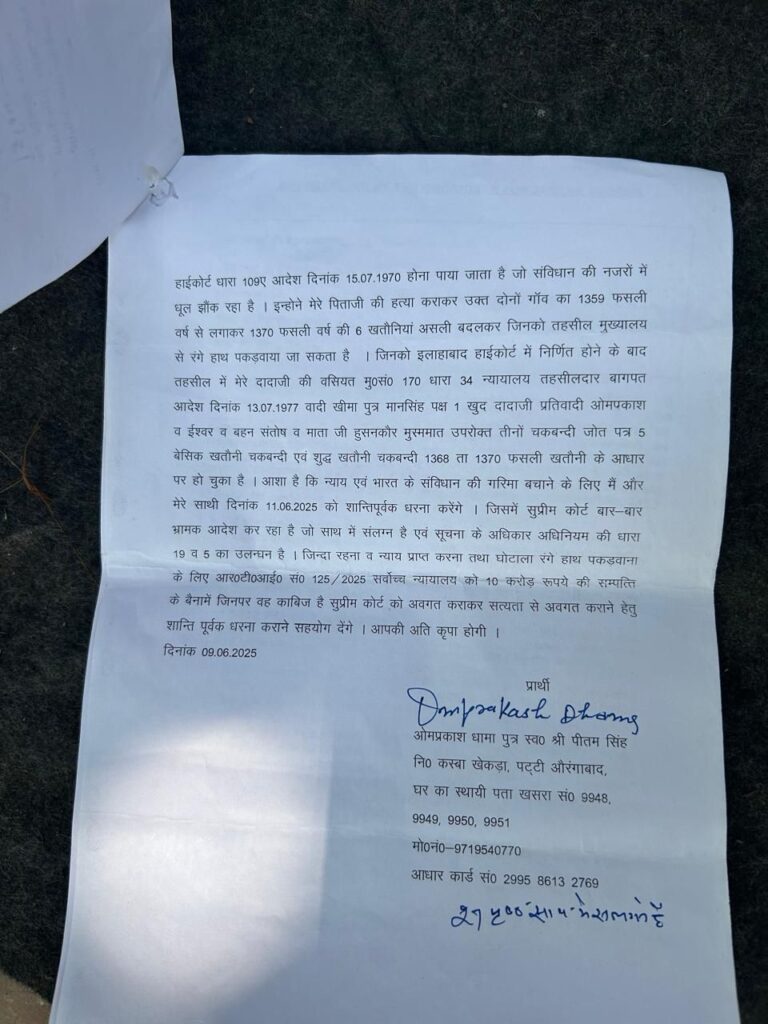 हाईकोर्ट धारा 109ए आदेश दिनांक 15.07.1970 होना पाया जाता है जो संविधान की नजरों में
धूल झौंक रहा है । इन्होने मेरे पिताजी की हत्या कराकर उक्त दोनों गॉव का 1359 फसली
वर्ष से लगाकर 1370 फसली वर्ष की 6 खतौनियां असली बदलकर जिनको तहसील मुख्यालय
से रंगे हाथ पकड़वाया जा सकता है । जिनको इलाहाबाद हाईकोर्ट में निर्णित होने के बाद
तहसील में मेरे दादाजी की वसियत मु0सं0 170 धारा 34 न्यायालय तहसीलदार बागपत
आदेश दिनांक 13.07.1977 वादी खीमा पुत्र मानसिंह पक्ष 1 खुद दादाजी प्रतिवादी ओमप्रकाश
व ईश्वर व बहन संतोष व माता जी हुसनकौर मुस्ममात उपरोक्त तीनों चकबन्दी जोत पत्र 5
बेसिक खतौनी चकबन्दी एवं शुद्ध खतौनी चकबन्दी 1368 ता 1370 फसली खतौनी के आधार
पर हो चुका है । आशा है कि न्याय एवं भारत के संविधान की गरिमा बचाने के लिए मैं और
मेरे साथी दिनांक 11.06.2025 को शान्तिपूर्वक धरना करेंगे । जिसमें सुप्रीम कोर्ट बार–बार
भ्रामक आदेश कर रहा है जो साथ में संलग्न है एवं सूचना के अधिकार अधिनियम की धारा
19 व 5 का उलन्घन है । जिन्दा रहना व न्याय प्राप्त करना तथा घोटाला रंगे हाथ पकड़वाना
के लिए आर0टी0आई0 सं0 125/2025 सर्वोच्च न्यायालय को 10 करोड़ रूपये की सम्पत्ति
के बैनामें जिनपर वह काबिज है सुप्रीम कोर्ट को अवगत कराकर सत्यता से अवगत कराने हेतु
शान्ति पूर्वक धरना कराने सहयोग देंगे । आपकी अति कृपा होगी ।
दिनांक 09.06.2025
प्रार्थी
Omprakash Dhama
ओमप्रकाश धामा पुत्र स्व0 श्री पीतम सिंह
नि0 कस्बा खेकड़ा, पट्टी औरंगाबाद,
घर का स्थायी पता खसरा सं0 9948,
9949, 9950, 9951
मो0नं0–9719540770
आधार कार्ड सं0 2995 8613 2769